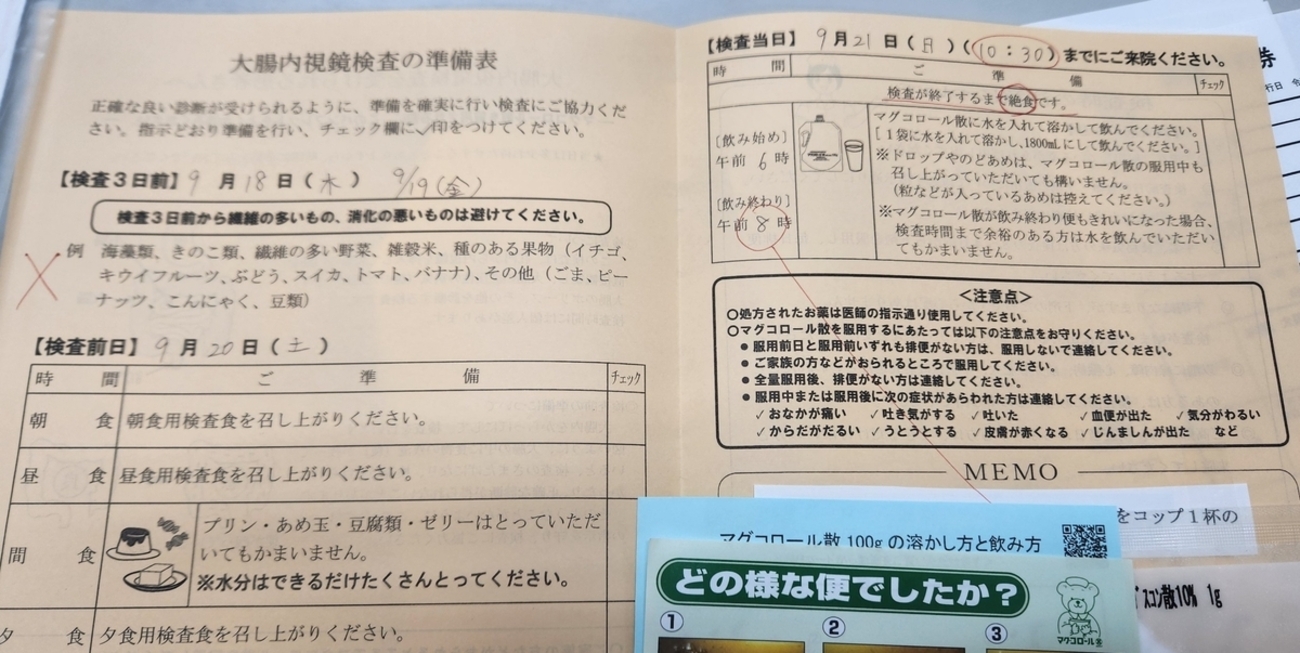 大腸内視鏡検査の準備表
正確な良い診断が受けられるように、準備を確実に行い検査にご協力くだ
さい。指示どおり準備を行い、チェック欄に✓印をつけてください。
【検査3日前】9月18日(木) 9/19(金)
検査3日前から繊維の多いもの、消化の悪いものは避けてください。
例 海藻類、きのこ類、繊維の多い野菜、雑穀米、種のある果物(イチゴ、
キウイフルーツ、ぶどう、スイカ、トマト、バナナ)、その他(ごま、ピー
ナッツ、こんにゃく、豆類)
【検査前日】9月20日(土)
時間 ご準備 チェック
朝食 朝食用検査食を召し上がりください。
昼食 昼食用検査食を召し上がりください。
間食 プリン・あめ玉・豆腐類・ゼリーはとっていただ
いてもかまいません。
※水分はできるだけたくさんとってください。
夕食 夕食用検査食を召し上がりください。
【検査当日】9月21日(日)(10:30)までにご来院ください。
時間 ご準備 チェック
検査が終了するまで絶食です。
[飲み始め]
午前6時
[飲み終わり]
午前8時
マグコロール散に水を入れて溶かして飲んでください。
[1袋に水を入れて溶かし、1800mLにして飲んでください。]
※ドロップやのどあめは、マグコロール散の服用中も
召し上がっていただいても構いません。
(粒などが入っているあめは控えてください。)
※マグコロール散が飲み終わり便もきれいになった場合、
検査時間まで余裕のある方は水を飲んでいただい
てもかまいません。
<注意点>
○処方されたお薬は医師の指示通り使用してください。
○マグコロール散を服用するにあたっては以下の注意点をお守りください。
●服用前日と服用前いずれも排便がない方は、服用しないで連絡してください。
●ご家族の方などがおられるところで服用してください。
●全量服用後、排便がない方は連絡してください。
●服用中または服用後に次の症状があらわれた方は連絡してください。
✓おなかが痛い ✓吐き気がする ✓吐いた ✓血便が出た ✓気分がわるい
✓からだがだるい ✓うとうとする ✓皮膚が赤くなる ✓じんましんが出た など
MEMO
をコップ1杯の
マグコロール散 100g の溶かし方と飲み方
どの様な便でしたか?
① ② ③
マグコロール
スコン散10% 1g
券
行日 令